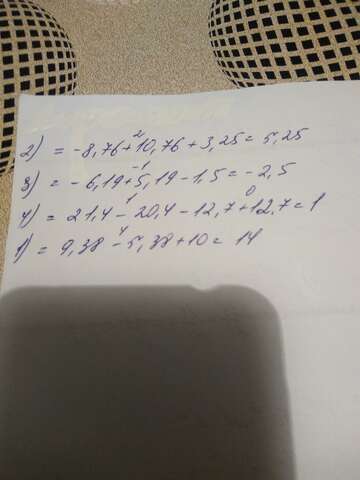 2
2) = -8,76+10,76+3,25=5,25
-1
3) = -6,19+5,19-1,5=-2,5
1 0
4) = 21,4-20,4-12,7+12,7=1
4
1) = 9,38-5,38+10=14